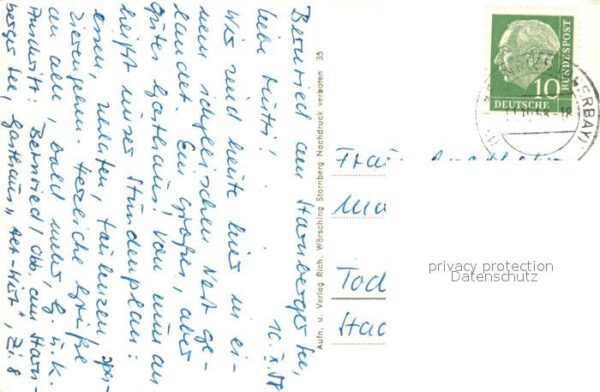 Bernried am Starnberger See,
10.X.58
Liebe Mutti!
Wir sind heute hier in ei-
nem idyllischen Nest ge-
landet. Ein großes, aber
gutes Gasthaus! Von nun an
heißt unser Stundenplan:
essen, schlafen, faulenzen, spa-
zierengehen. Herzliche Grüße
an alle, bald mehr, G. u. K.
Anschrift: Bernried/Obb. am Starn-
berger See, Gasthaus "Alt-Wirt", Zi. 8
Aufn. u. Verlag Rich. Wörsching Starnberg Nachdruck verboten 35
10
DEUTSCHE
BUNDESPOST
Frau
Ma
Tod
Stad
privacy protection
Datenschutz